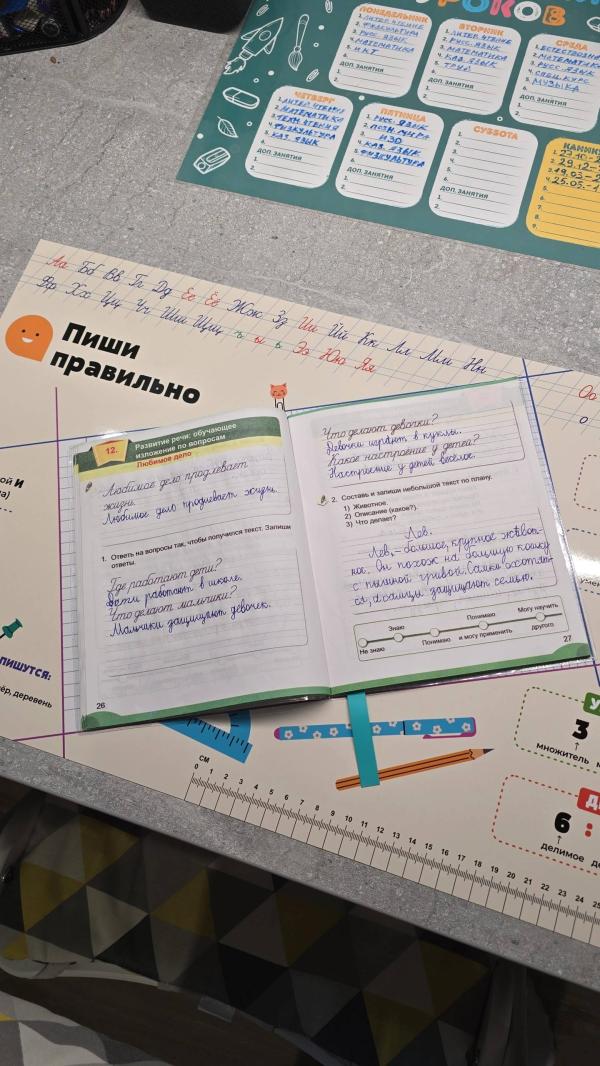 УРОКОВ
ПОНЕДЕЛЬНИК
1. ЛИТЕР. ЧТЕНИЕ
2. ФИЗКУЛЬТУРА
3. РУС. ЯЗЫК
4. МАТЕМАТИКА
5. ИКТ
ДОП. ЗАНЯТИЯ
1.
2.
ВТОРНИК
1. ЛИТЕР. ЧТЕНИЕ
2. РУС. ЯЗЫК
3. МАТЕМАТИКА
4. КАЗ. ЯЗЫК
5. ТРУД
ДОП. ЗАНЯТИЯ
1.
2.
СРЕДА
1. ЕСТЕСТВОЗНА
2. МАТЕМАТИК
3. РУСС. ЯЗЫК
4. СПЕЦ. КУРС
5. МУЗЫКА
6.
ДОП. ЗАНЯТИЯ
1.
2.
ЧЕТВЕРГ
1. ЛИТЕР. ЧТЕНИЕ
2. МАТЕМАТИКА
3. ЧТЕНИЯ
4. ФИЗКУЛЬТУРА
5. КАЗ. ЯЗЫК
ДОП. ЗАНЯТИЯ
1.
2.
ПЯТНИЦА
1. РУСС. ЯЗЫК
2. ПОЗН. МИРА
3. ИЗО
4. КАЗ. ЯЗЫК
5. ФИЗКУЛЬТУРА
ДОП. ЗАНЯТИЯ
1.
2.
СУББОТА
1.
2.
3.
4.
5.
6.
ДОП. ЗАНЯТИЯ
1.
2.
КАНИКУ
1. 27.10-2
2. 29.12-
3. 19.03-2
4. 25.05.-1
5.
6.
7.
8.
9.
Аа Бб Вв Гг Дд Ее Ёё Жж Зз Ии Йй Кк Лл Мм Нн
Оо
Фф Хх Цц Чч Шш Щщ ъ ы ь Ээ Юю Яя
Пиши
правильно
12.
Развитие речи: обучающее
изложение по вопросам
Любимое дело
Любимое дело продлевает
жизнь.
Любимое дело продлевает жизнь.
1. Ответь на вопросы так, чтобы получился текст. Запиши
ответы.
Где работают дети?
Дети работают в школе.
Что делают мальчики?
Мальчики защищают девочек.
26
Что делают девочки?
Девочки играют в куклы.
Какое настроение у детей?
Настроение у детей весёлое.
2. Составь и запиши небольшой текст по плану.
1) Животное.
2) Описание (какое?).
3) Что делает?
Лев.
Лев, – большое, крупное живот-
ное. Он похож на большую кошку
с пышной гривой. Самки охотят-
ся, а самцы защищают семью.
Не знаю
Знаю
Понимаю
Понимаю
и могу применить
Могу научить
другого
27
ой и
а)
ПИШУТСЯ:
ёр, деревень
умен
3
множитель
6 :
делимое
СМ
0 1 2 3 4 5 6 7 8 9 10 11 12 13 14 15 16 17 18 19 20 21 22 23 24 25